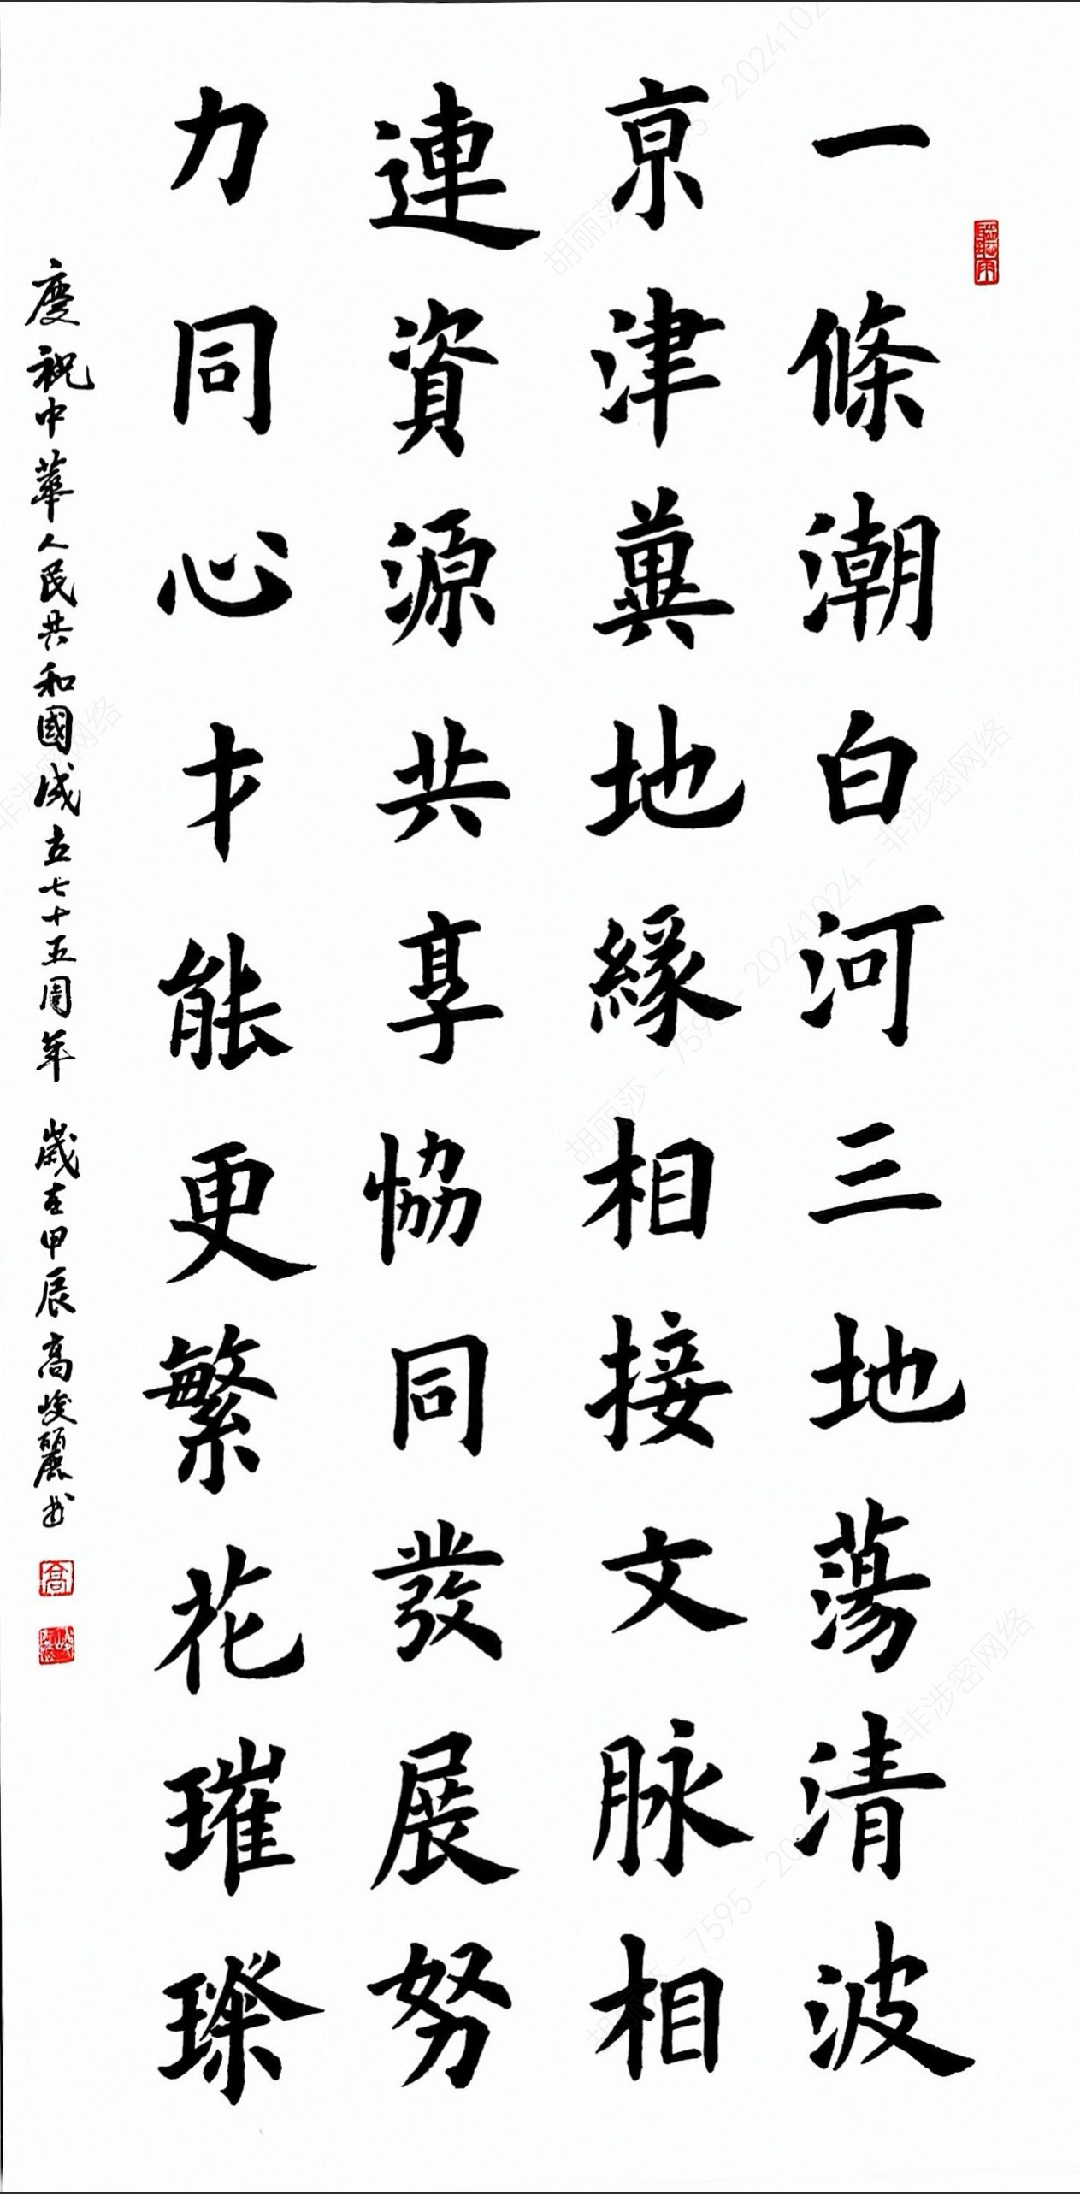 一條潮白河三地蕩清波
京津冀地緣相接文脉相
連資源共享協同發展努
力同心才能更繁花璀璨
慶祝中華人民共和國成立七十五周年 歲在甲辰高峻麗書
聽雨
高
胡丽莎 - 7595 - 20241024 - 非涉密网络